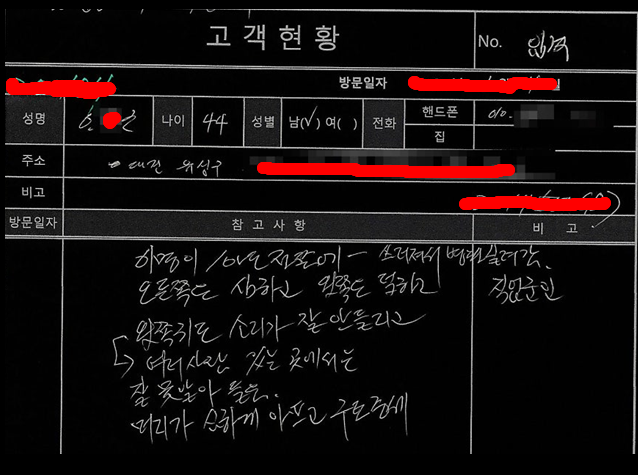 고객현황
No.
방문일자
성명 나이 44 성별 남(√) 여( ) 전화 핸드폰 010.
집
주소 대전 유성구
비고
방문일자 참고사항 비고
이명이 쓰러져서 병원 실려감.
오른쪽은 심하고 왼쪽도 덜하고 직업군인
왼쪽귀도 소리가 잘 안들리고
↳ 여러사람 있는 곳에서는
잘 못알아 들음.
머리가 심하게 아프고 구토증세